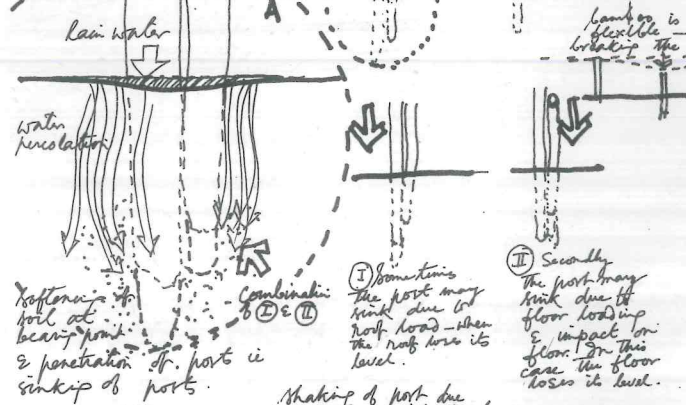 A
Rain water
bamboo is
flexible —
breaking the
water
percolation
Softening of
soil at
bearing point
& penetration of posts ie
sinking of posts.
Combination
of I & II
I Sometimes
the post may
sink due to
roof load – when
the roof loses its
level.
II Secondly
the post may
sink due to
floor loading
& impact on
floor. In this
case the floor
loses its level.
Shaking of post due